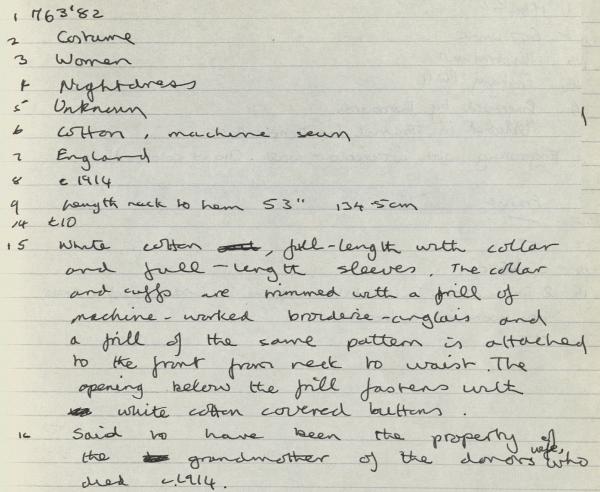 1 763'82
2 Costume
3 Women
4 Nightdress
5 Unknown
6 Cotton, machine sewn
7 England
8 c 1914
9 Length neck to hem 53" 134.5cm
14 £10
15 White cotton, full-length with collar
and full-length sleeves. The collar
and cuffs are trimmed with a frill of
machine-worked broiderie-anglais and
a frill of the same pattern is attached
to the front from neck to waist. The
opening below the frill fastens with
white cotton covered buttons.
16 Said to have been the property of
the grandmother of the donors wife, who
died c.1914.